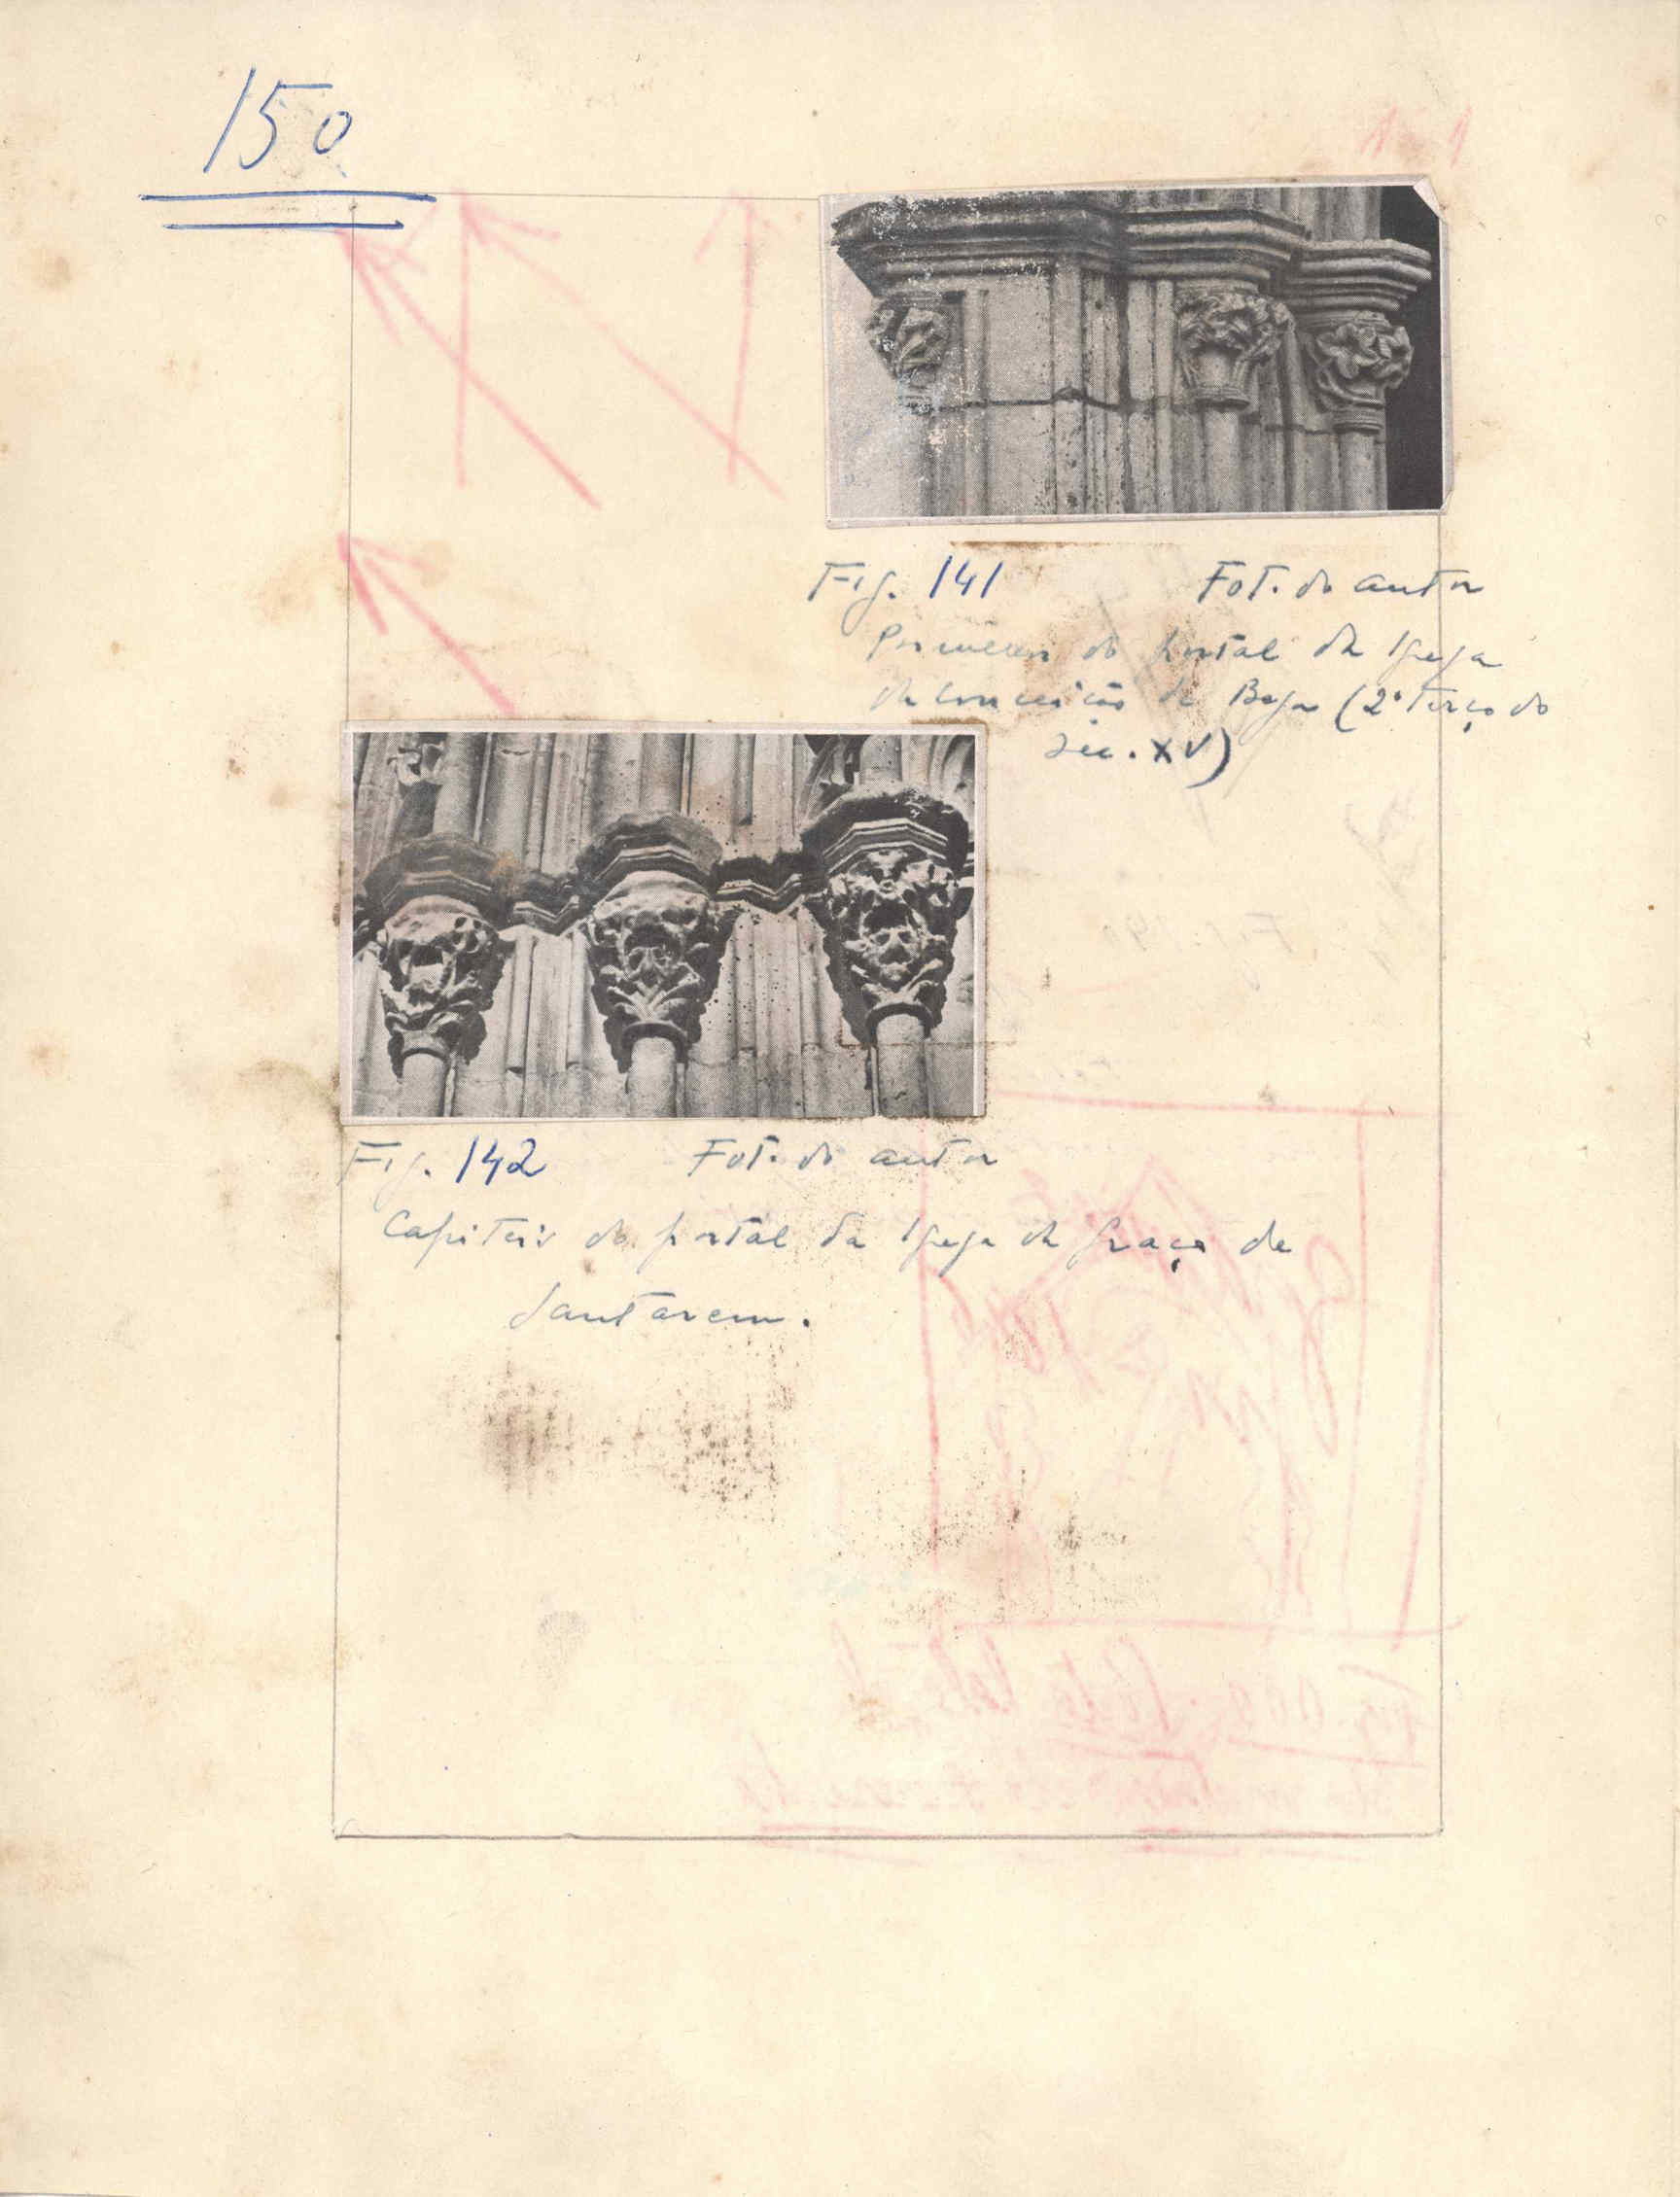 150
Fig. 141 Fot. do autor
Pormenor do portal da Igreja
da Conceição de Beja (2º terço do
Sec. XV)
Fig. 142 Fot. do autor
Capiteis do portal da Igreja da Graça de
Santarem.